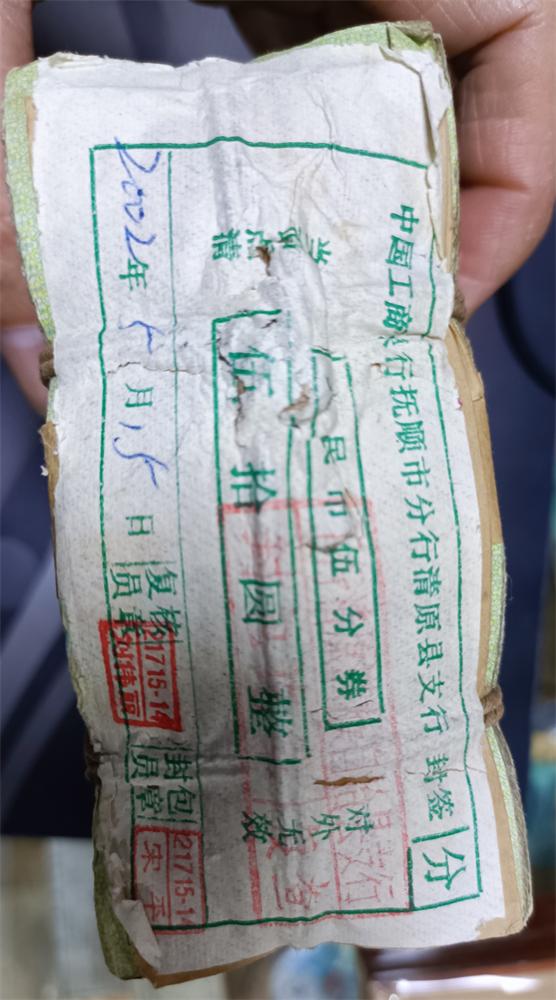 中国工商银行抚顺市分行清原县支行 封签
分
民币伍分券
伍拾圆整
当面点清
对外无效
2002年5月15日
复核员章
21715-14
封包员章
21715-14
宋